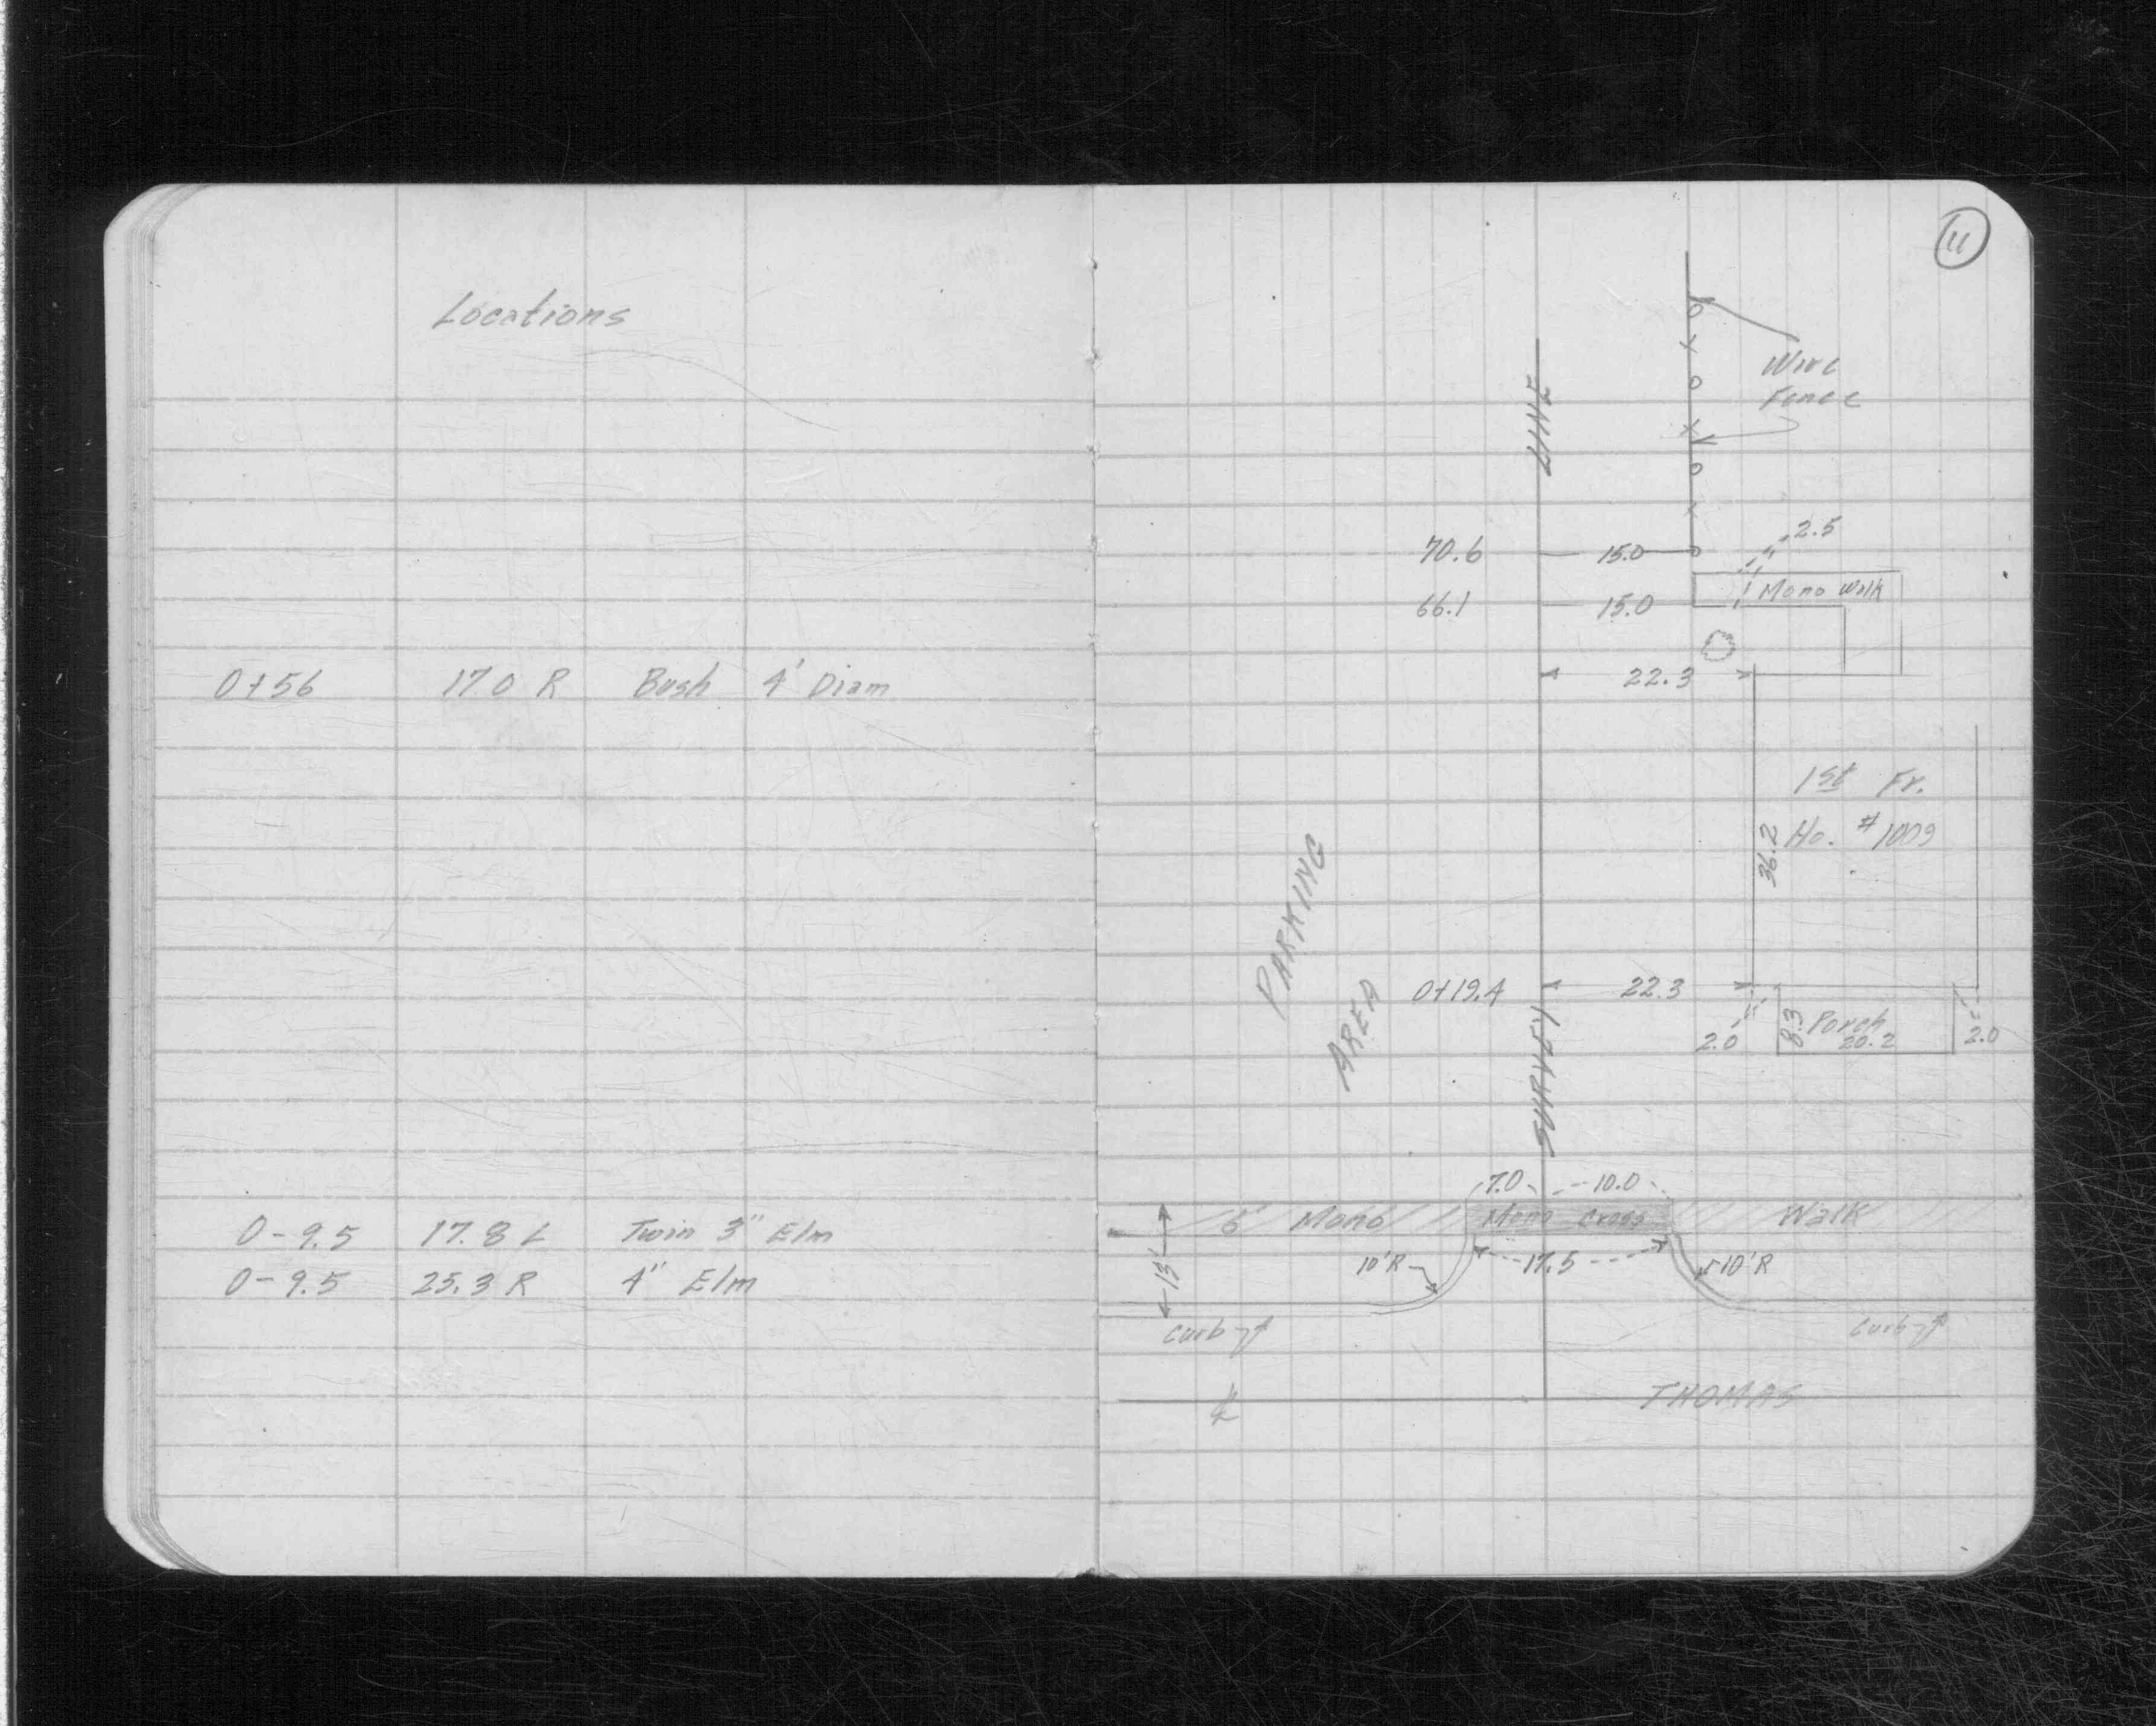 Locations
0+56 17.0 R Bush 4' Diam
0-9.5 17.8 L Twin 3" Elm
0-9.5 25.3 R 4" Elm
11
Wire
Fence
LINE
2.5
70.6 15.0
Mono Walk
66.1 15.0
22.3
1st Fr.
36.2 Ho. #1009
PARKING
AREA
0+19.4 22.3
2.0 8.3 Porch 20.2 2.0
SURVEY
7.0 10.0
6' Mono Mono Cross Walk
13' 10'R 17.5 10'R
Curb Curb
℄ THOMAS